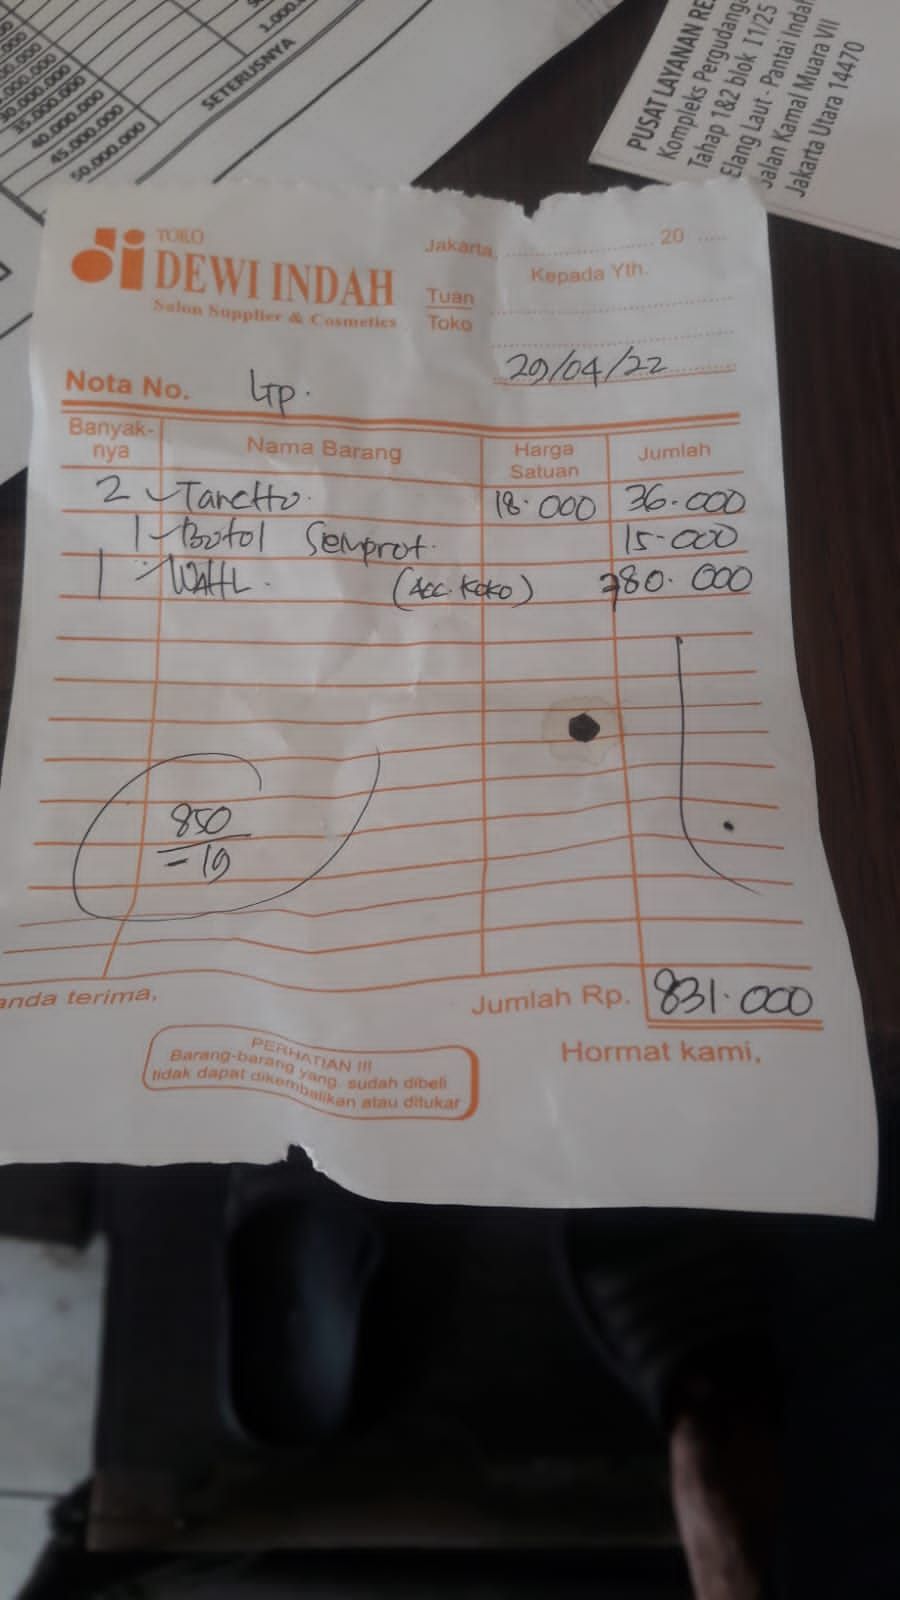 1.000.
SETERUSNYA
000.000
30.000.000
35.000.000
40.000.000
45.000.000
50.000.000
PUSAT LAYANAN RE
Kompleks Pergudanga
Tahap 1&2 blok I1/25
Elang Laut - Pantai Indah
Jalan Kamal Muara VII
Jakarta Utara 14470
di TOKO
DEWI INDAH
Salon Supplier & Cosmetics
Jakarta, 20
Kepada Yth.
Tuan
Toko
29/04/22
Nota No.
Banyak-
nya
Nama Barang
Harga
Satuan
Jumlah
2 Tancho. 18.000 36.000
1 Botol Semprot. 15.000
1 WAHL. (Acc. Koko) 780.000
850
- 19
anda terima,
Jumlah Rp. 831.000
Hormat kami,
PERHATIAN !!!
Barang-barang yang sudah dibeli
tidak dapat dikembalikan atau ditukar